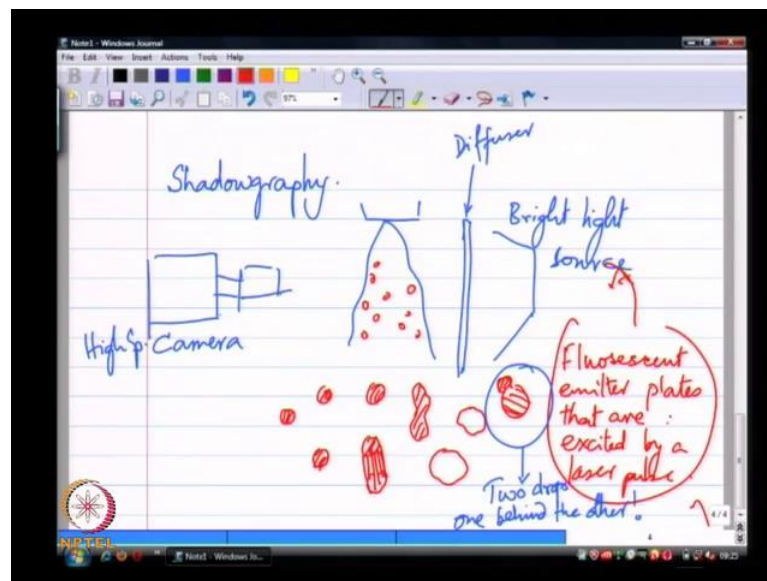 Note1 - Windows Journal
File Edit View Insert Actions Tools Help
B I
97%
Diffuser
Shadowgraphy.
Bright light
source
High Sp. Camera
Fluorescent
emitter plates
that are
excited by a
laser pulse
Two drops
one behind the other!
4/4
4
NPTEL
Note1 - Windows Jo...
09:25